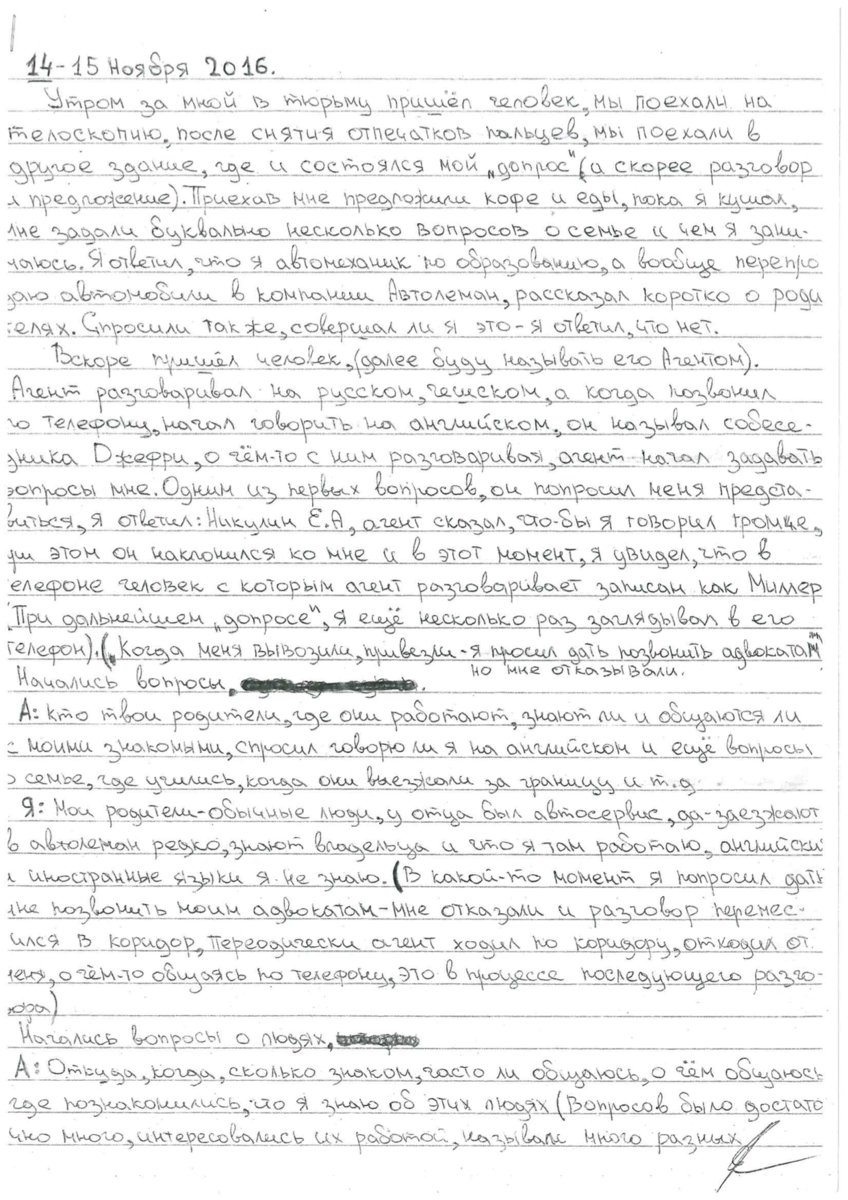 14-15 Ноября 2016.
Утром за мной в тюрьму пришёл человек, мы поехали на
телоскопию, после снятия отпечатков пальцев, мы поехали в
другое здание, где и состоялся мой „допрос" (а скорее разговор
и предложение). Приехав мне предложили кофе и еды, пока я кушал,
мне задали буквально несколько вопросов о семье и чем я зани-
маюсь. Я ответил, что я автомеханик по образованию, а вообще перепро
даю автомобили в компании Автолеман, рассказал коротко о роди
телях. Спросили так же, совершал ли я это-я ответил, что нет.
Вскоре пришёл человек, (далее буду называть его Агентом).
Агент разговаривал на русском, чешском, а когда позвонил
го телефону, начал говорить на английском, он называл собесе-
дника Джефри, о чём-то с ним разговаривая, агент начал задавать
вопросы мне. Одним из первых вопросов, он попросил меня предста-
виться, я ответил: Никулин Е.А, агент сказал, что-бы я говорил громче,
при этом он наклонился ко мне и в этот момент, я увидел, что в
елефоне человек с которым агент разговаривает записан как Миллер
(При дальнейшем „допросе", я ещё несколько раз заглядывал в его
телефон). („Когда меня вывозили, привезли-я просил дать позвонить адвокатам"
но мне отказывали.
Начались вопросы,
А: Кто твои родители, где они работают, знают ли и общаются ли
с моими знакомыми, спросил говорю ли я на английском и ещё вопросы
о семье, где учились, когда они выезжали за границу и т.д
Я: Мои родители-обычные люди, у отца был автосервис, да-заезжают
в автолеман редко, знают владельца и что я там работаю, английски
и иностранные языки я не знаю. (В какой-то момент я попросил дать
мне позвонить моим адвокатам-мне отказали и разговор перемес-
ился в коридор, Переодически агент ходил по коридору, отходил от
меня, о чём-то общаясь по телефону, это в процессе последующего разго-
вора)
Начались вопросы о людях,
А: Откуда, когда, сколько знаком, часто ли общаюсь, о чём общаюсь
где познакомились, что я знаю об этих людях (Вопросов было достато
чно много, интересовались их работой, называли много разных